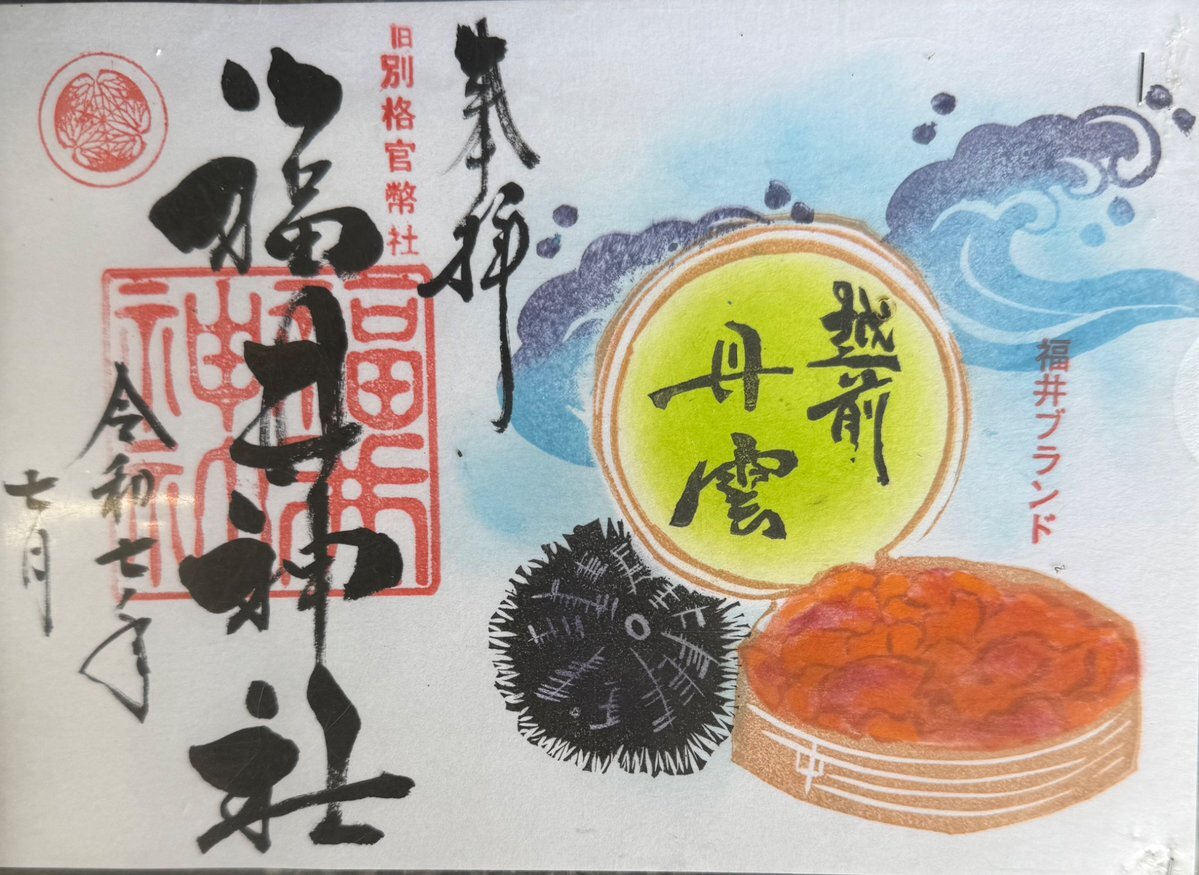 福井ブランド
越前
丹雲
奉拝
旧別格官幣社
福井神社
福井神社
令和七年
七月